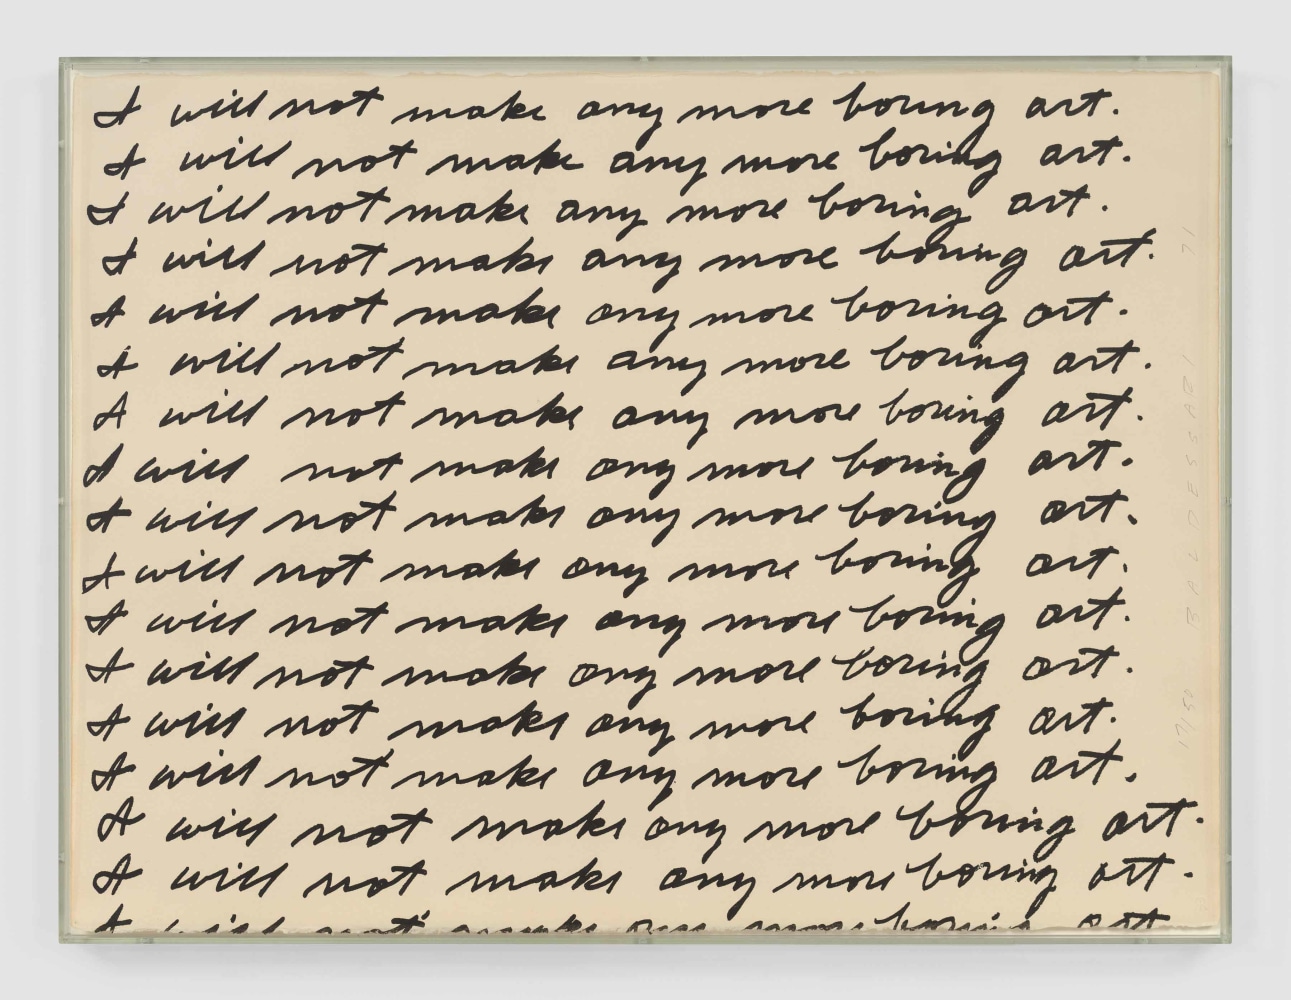 I will not make any more boring art.
I will not make any more boring art.
I will not make any more boring art.
I will not make any more boring art.
I will not make any more boring art.
I will not make any more boring art.
I will not make any more boring art.
I will not make any more boring art.
I will not make any more boring art.
I will not make any more boring art.
I will not make any more boring art.
I will not make any more boring art.
I will not make any more boring art.
I will not make any more boring art.
I will not make any more boring art.
I will not make any more boring art.
I will not make any more boring art
17/50 BALDESSARI 71